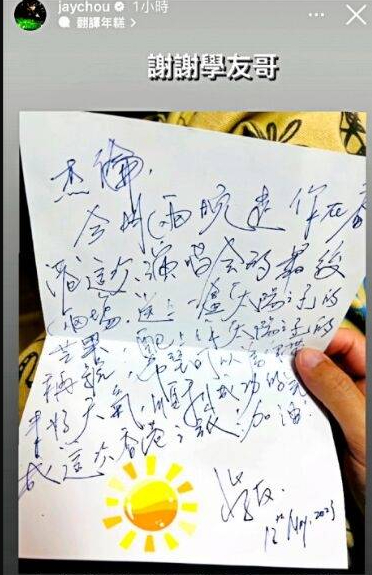 jaychou 1小時
翻譯年糕 >
謝謝學友哥
杰倫,
今明兩晚是你在香
港這次演唱会的最後
兩場, 送上一盒太陽之子的
芒果, 配上你太陽之子的
稱號, 希望可以
來好天氣, 順利成功的完
成這次香港之旅. 加油.
學友.
12th May. 2023